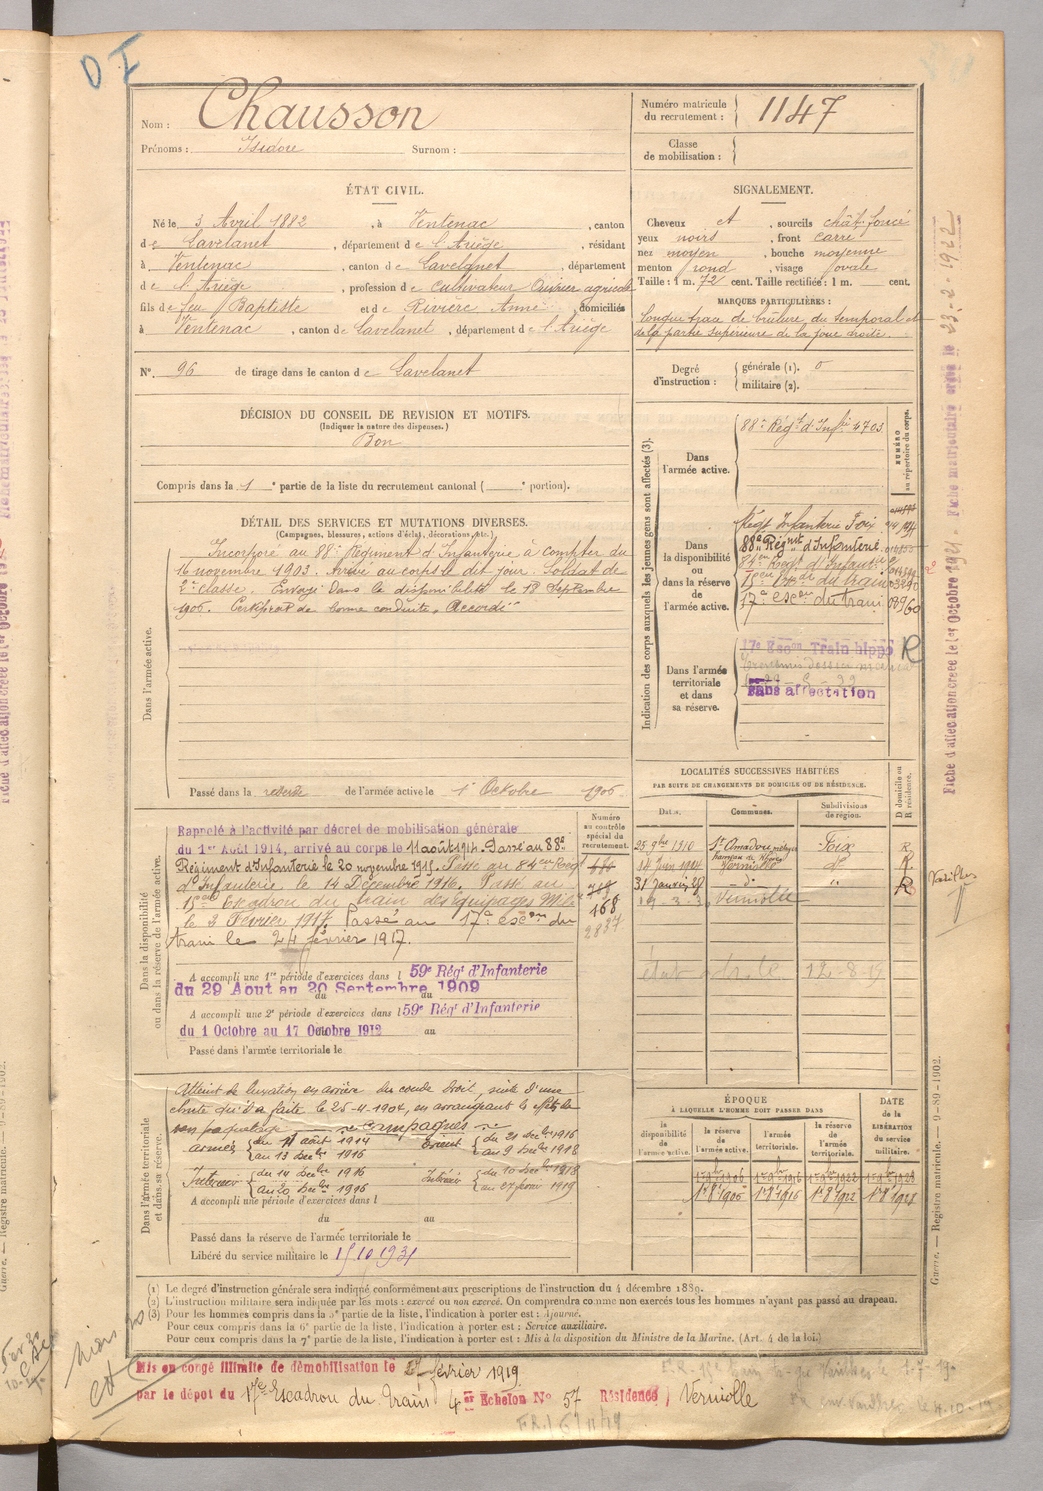 DI
Nom : Chausson
Prénoms : Isidore Surnom :
Numéro matricule du recrutement : 1147
Classe de mobilisation :
ÉTAT CIVIL.
Né le 3 Avril 1882, à Ventenac, canton
de Lavelanet, département de l'Ariège, résidant
à Ventenac, canton de Lavelanet, département
de l'Ariège, profession de cultivateur Ouvrier agricole
fils de feu Baptiste et de Rivière Anne, domiciliés
à Ventenac, canton de Lavelanet, département de l'Ariège
N° 96 de tirage dans le canton de Lavelanet
SIGNALEMENT.
Cheveux et, sourcils chât. foncé
yeux noirs, front carré
nez moyen, bouche moyenne
menton rond, visage ovale
Taille : 1 m. 72 cent. Taille rectifiée : 1 m. cent.
MARQUES PARTICULIÈRES :
Longue trace de brûlure du temporal et
de la partie supérieure de la joue droite.
Degré d'instruction : générale (1). 0
militaire (2).
DÉCISION DU CONSEIL DE REVISION ET MOTIFS.
(Indiquer la nature des dispenses.)
Bon
Compris dans la 1e partie de la liste du recrutement cantonal ( e portion).
DÉTAIL DES SERVICES ET MUTATIONS DIVERSES.
(Campagnes, blessures, actions d'éclat, décorations, etc.)
Dans l'armée active.
Incorporé au 88e Régiment d'Infanterie à compter du
16 novembre 1903. Arrivé au corps le dit jour. Soldat de
2e classe. Envoyé dans la disponibilité le 18 Septembre
1906. Certificat de bonne conduite "Accordé"
Passé dans la réserve de l'armée active le 1er Octobre 1906
Indication des corps auxquels les jeunes gens sont affectés (3).
NUMÉRO au répertoire du corps.
Dans l'armée active.
88e Régt d'Infie 4703
Dans la disponibilité ou dans la réserve de l'armée active.
Régt Infanterie Foix
88e Régnt d'Infanterie
84e Régt d'Infanterie
15e Esc. du train
17e escon du train
Dans l'armée territoriale et dans sa réserve.
17e Escon Train hippo R
Sans affectation
LOCALITÉS SUCCESSIVES HABITÉES
PAR SUITE DE CHANGEMENTS DE DOMICILE OU DE RÉSIDENCE.
Dates. Communes. Subdivisions de région. D domicile ou R résidence.
25 9bre 1910 St Amadou Foix R
14 Juin 1914 Verniolle do R
31 Janvier 28 do " R
Verniolle
Varilhes
Dans la disponibilité ou dans la réserve de l'armée active.
Numéro au contrôle spécial du recrutement.
Rappelé à l'activité par décret de mobilisation générale
du 1er Août 1914, arrivé au corps le 11 août 1914. Passé au 88e
Régiment d'Infanterie le 20 novembre 1915. Passé au 84e Régt
d'Infanterie le 14 Décembre 1916. Passé au
15e Escadron du train des équipages Mil.
le 3 Février 1917. Passé au 17e escon du
train le 24 février 1917.
168
2837
A accompli une 1re période d'exercices dans l 59e Régt d'Infanterie
du 29 Aout au 20 Septembre 1909
A accompli une 2e période d'exercices dans l 59e Régt d'Infanterie
du 1 Octobre au 17 Octobre 1912 au
Passé dans l'armée territoriale le
Dans l'armée territoriale et dans sa réserve.
Atteint de luxation en arrière du coude droit, suite d'une
chute qu'il a faite le 25-4-1904, en arrangeant les effets de
son paquetage
Campagnes
armés du 11 août 1914 au 13 décbre 1916
Orient du 21 décbre 1916 au 9 décbre 1918
Intérieur du 14 décbre 1916 au 20 décbre 1916
Intérieur du 10 décbre 1918 au 27 février 1919
A accompli une période d'exercices dans l
du au
Passé dans la réserve de l'armée territoriale le
Libéré du service militaire le 15 10 1931
ÉPOQUE
À LAQUELLE L'HOMME DOIT PASSER DANS
la disponibilité de l'armée active. la réserve de l'armée active. l'armée territoriale. la réserve de l'armée territoriale. DATE de la LIBÉRATION du service militaire.
1er 8bre 1906 1er 8bre 1916 1er 8bre 1922 1er 8bre 1928
(1) Le degré d'instruction générale sera indiqué conformément aux prescriptions de l'instruction du 4 décembre 1889.
(2) L'instruction militaire sera indiquée par les mots : exercé ou non exercé. On comprendra comme non exercés tous les hommes n'ayant pas passé au drapeau.
(3) Pour les hommes compris dans la 5e partie de la liste, l'indication à porter est : Ajourné.
Pour ceux compris dans la 6e partie de la liste, l'indication à porter est : Service auxiliaire.
Pour ceux compris dans la 7e partie de la liste, l'indication à porter est : Mis à la disposition du Ministre de la Marine. (Art. 4 de la loi.)
Mis en congé illimité de démobilisation le 27 février 1919
par le dépôt du 17e Escadron du Train 4e Echelon N° 57 Résidence Verniolle
Fiche d'affectation créée le 1er Octobre 1921. - Fiche matriculaire créée le 23-2-1922
Guerre. — Registre matricule. — 9-89-1902.